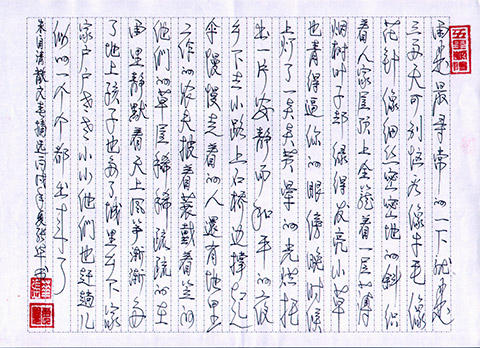 雨是最寻常的一下就是
三两天可别恼看像牛毛像
花针像细丝密密地斜织
着人家屋顶上全笼着一层薄
烟树叶子却绿得发亮小草
也青得逼你的眼傍晚时候
上灯了一点点黄晕的光烘托
出一片安静而和平的夜
乡下去小路上石桥边撑起
伞慢慢走着的人還有地里
工作的农夫披着蓑戴着笠的
他们的草屋稀稀疏疏的在
雨里静默着天上风筝渐渐多
了地上孩子也多了城里乡下家
家户户老老小小他們也赶趟儿
似的一个个都出来了
朱自清散文春摘句